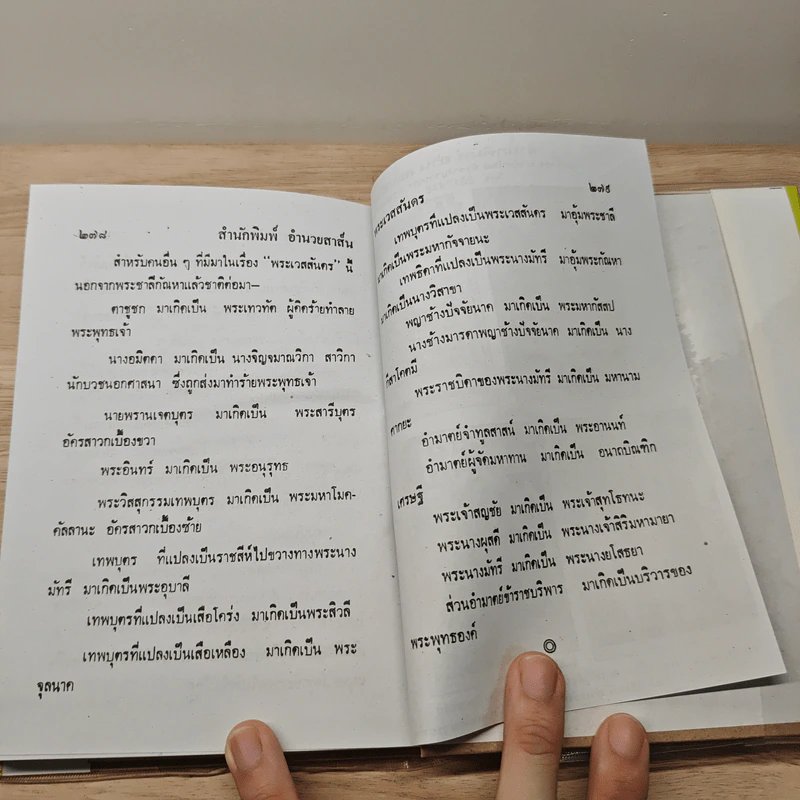 ๒๗๘ สำนักพิมพ์ อำนวยสาส์น
สำหรับคนอื่น ๆ ที่มีมาในเรื่อง “พระเวสสันดร” นี้
นอกจากพระชาลีกัณหาแล้วชาติต่อมา—
ตาชูชก มาเกิดเป็น พระเทวทัต ผู้คิดร้ายทำลาย
พระพุทธเจ้า
นางอมิตดา มาเกิดเป็น นางจิญจมาณวิกา สาวิกา
นักบวชนอกศาสนา ซึ่งถูกส่งมาทำร้ายพระพุทธเจ้า
นายพรานเจตบุตร มาเกิดเป็น พระสารีบุตร
อัครสาวกเบื้องขวา
พระอินทร์ มาเกิดเป็น พระอนุรุทธ
พระวิสสุกรรมเทพบุตร มาเกิดเป็น พระมหาโมค-
คัลลานะ อัครสาวกเบื้องซ้าย
เทพบุตร ที่แปลงเป็นราชสีห์ไปขวางทางพระนาง
มัทรี มาเกิดเป็นพระอุบาลี
เทพบุตรที่แปลงเป็นเสือโคร่ง มาเกิดเป็นพระสิวลี
เทพบุตรที่แปลงเป็นเสือเหลือง มาเกิดเป็น พระ
จุลนาค
พระเวสสันดร ๒๗๙
เทพบุตรที่แปลงเป็นพระเวสสันดร มาอุ้มพระชาลี
มาเกิดเป็นพระมหากัจจายนะ
เทพธิดาที่แปลงเป็นพระนางมัทรี มาอุ้มพระกัณหา
มาเกิดเป็นนางวิสาขา
พญาช้างปัจจัยนาค มาเกิดเป็น พระมหากัสสป
นางช้างมารดาพญาช้างปัจจัยนาค มาเกิดเป็น นาง
กีสาโคตมี
พระราชบิดาของพระนางมัทรี มาเกิดเป็น มหานาม
ศากยะ
อำมาตย์จำทูลสาสน์ มาเกิดเป็น พระอานนท์
อำมาตย์ผู้จัดมหาทาน มาเกิดเป็น อนาถบิณฑิก
เศรษฐี
พระเจ้าสญชัย มาเกิดเป็น พระเจ้าสุทโธทนะ
พระนางผุสดี มาเกิดเป็น พระนางเจ้าสิริมหามายา
พระนางมัทรี มาเกิดเป็น พระนางยโสธยา
ส่วนอำมาตย์ข้าราชบริพาร มาเกิดเป็นบริวารของ
พระพุทธองค์